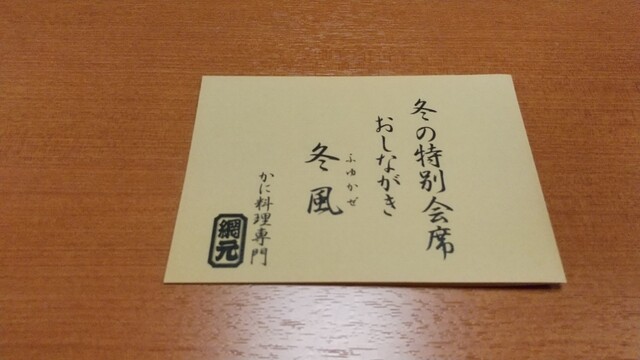 冬の特別会席
おしながき
ふゆかぜ
冬風
かに料理専門
網元